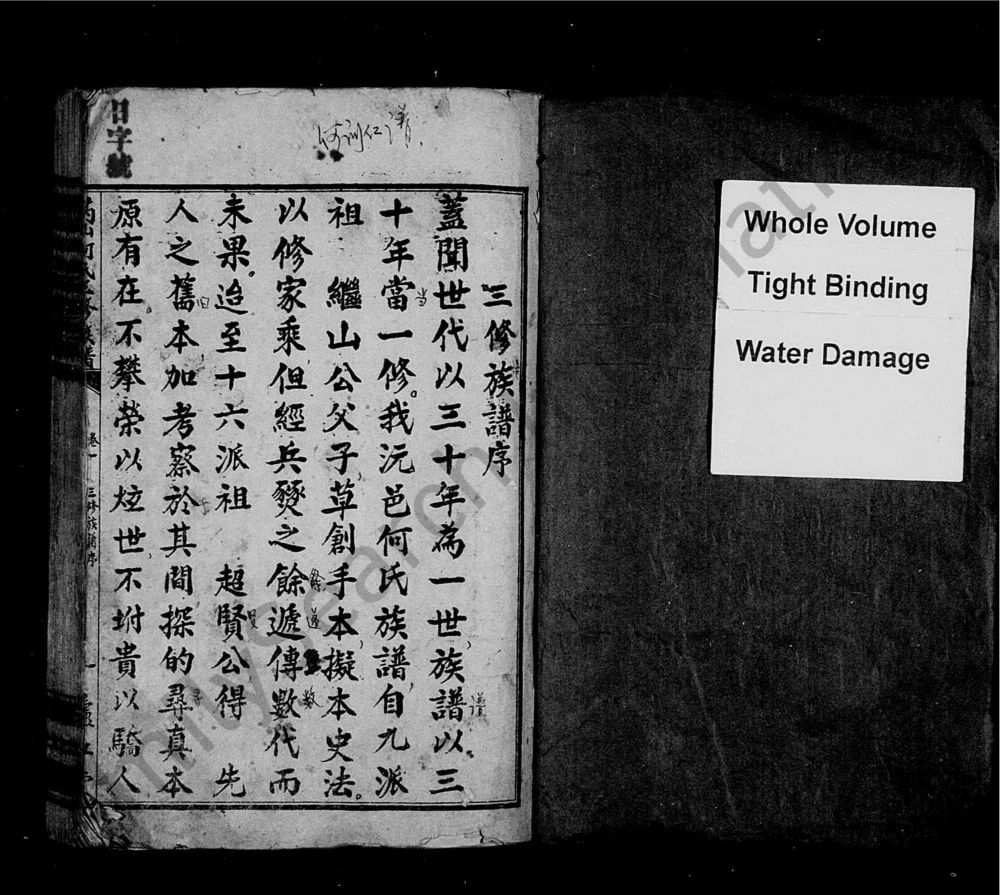 日字號
三修族譜序
蓋聞世代以三十年為一世族譜以三
十年當一修我沅邑何氏族譜自九派
祖 繼山公父子草創手本擬本史法
以修家乘但經兵燹之餘遞傳數代而
未果迨至十六派祖 超賢公得 先
人之舊本加考察於其間探的尋真本
原有在不攀榮以炫世不坿貴以驕人
卷一
三修族譜序
一
Whole Volume
Tight Binding
Water Damage